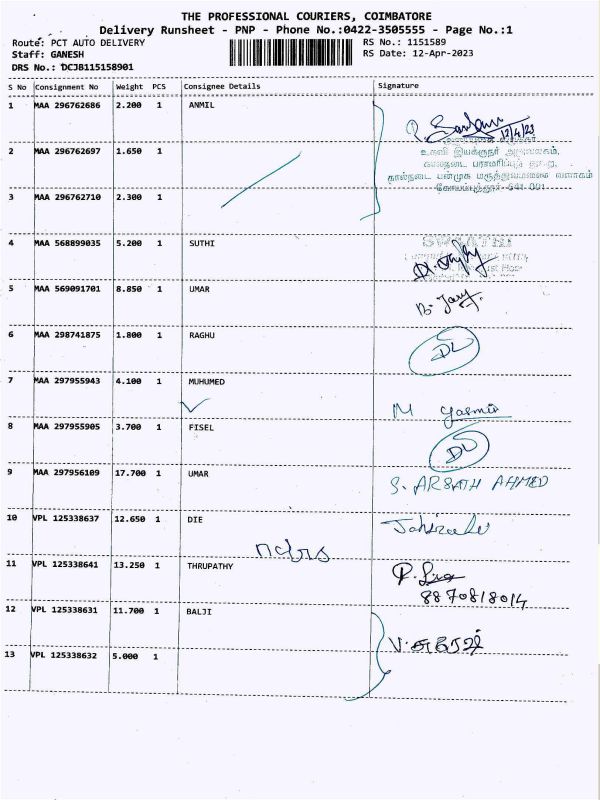 THE PROFESSIONAL COURIERS, COIMBATORE
Delivery Runsheet - PNP - Phone No.:0422-3505555 - Page No.:1
Route: PCT AUTO DELIVERY RS No.: 1151589
Staff: GANESH RS Date: 12-Apr-2023
DRS No.: DCJB115158901
S No Consignment No Weight PCS Consignee Details Signature
1 MAA 296762686 2.200 1 ANMIL
12/4/23
2 MAA 296762697 1.650 1
உதவி இயக்குநர் அலுவலகம்,
கால்நடை பராமரிப்புத் துறை,
கால்நடை பன்முக மருத்துவமனை வளாகம்
கோயம்புத்தூர் - 641 001
3 MAA 296762710 2.300 1
4 MAA 568899035 5.200 1 SUTHI
5 MAA 569091701 8.850 1 UMAR
6 MAA 298741875 1.800 1 RAGHU
DL
7 MAA 297955943 4.100 1 MUHUMED
M yasmin
8 MAA 297955905 3.700 1 FISEL
DL
9 MAA 297956109 17.700 1 UMAR
S. ARSATH AHMED
10 VPL 125338637 12.650 1 DIE
11 VPL 125338641 13.250 1 THRUPATHY
8870818014
12 VPL 125338631 11.700 1 BALJI
13 VPL 125338632 5.000 1